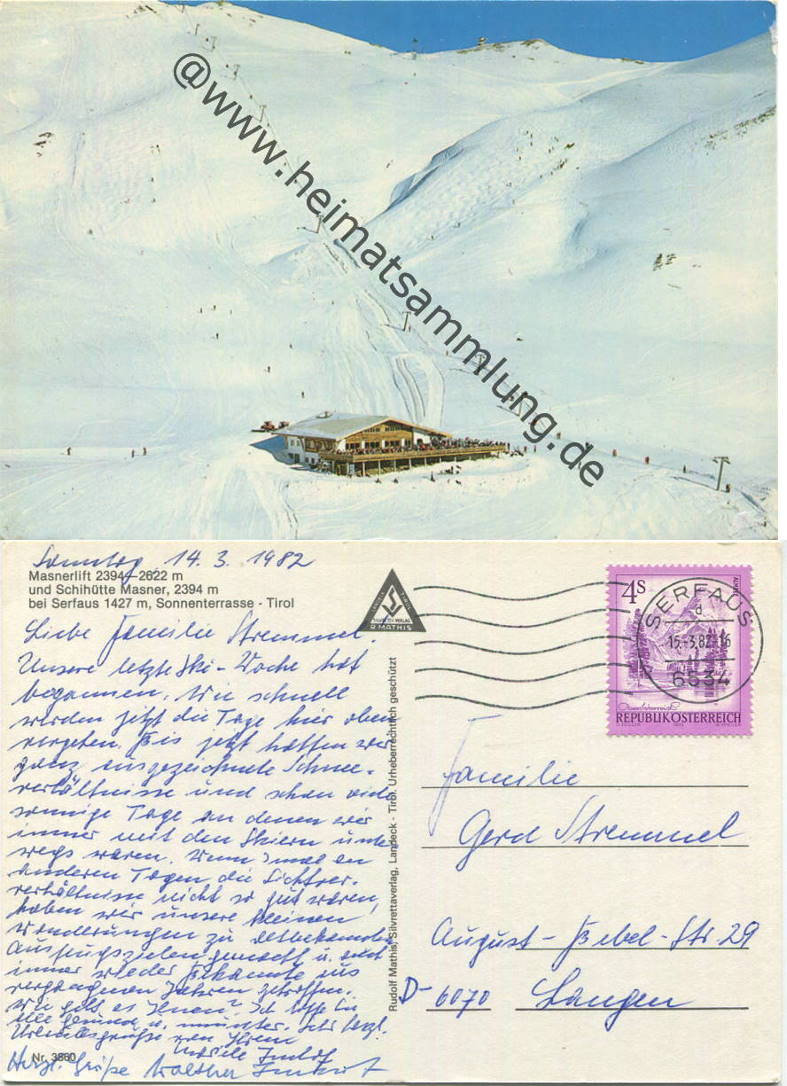 @www.heimatsammlung.de
Sonntag 14.3.1982
Masnerlift 2394–2622 m
und Schihütte Masner, 2394 m
bei Serfaus 1427 m, Sonnenterrasse - Tirol
Liebe Familie Stremmel.
Unsere letzte Ski-Woche hat
begonnen. Wie schnell
werden jetzt die Tage hier oben
vergehen. Bis jetzt hatten wir
ganz ausgezeichnete Schnee-
verhältnisse und schon viele
sonnige Tage an denen wir
immer mit den Skiern unter-
wegs waren. Wenn mal an
anderen Tagen die Sichtver-
verhältnisse nicht so gut waren,
haben wir unsere kleinen
Wanderungen zu altbekannten
Ausflugszielen gemacht u. auch
immer wieder Bekannte aus
vergangenen Jahren getroffen.
Wie geht es Ihnen? Ich hoffe Sie
alle gesund u. munter. Mit herzl.
Urlaubsgrüße von Ihrem
Herzl. Grüße Walther
Nr. 3860
R. MATHIS
Rudolf Mathis, Silvrettaverlag, Landeck - Tirol. Urheberrechtlich geschützt
4S
REPUBLIK ÖSTERREICH
SERFAUS
d
15.-3.82-16
6534
Familie
Gerd Stremmel
August-Bebel-Str 29
D-6070 Langen